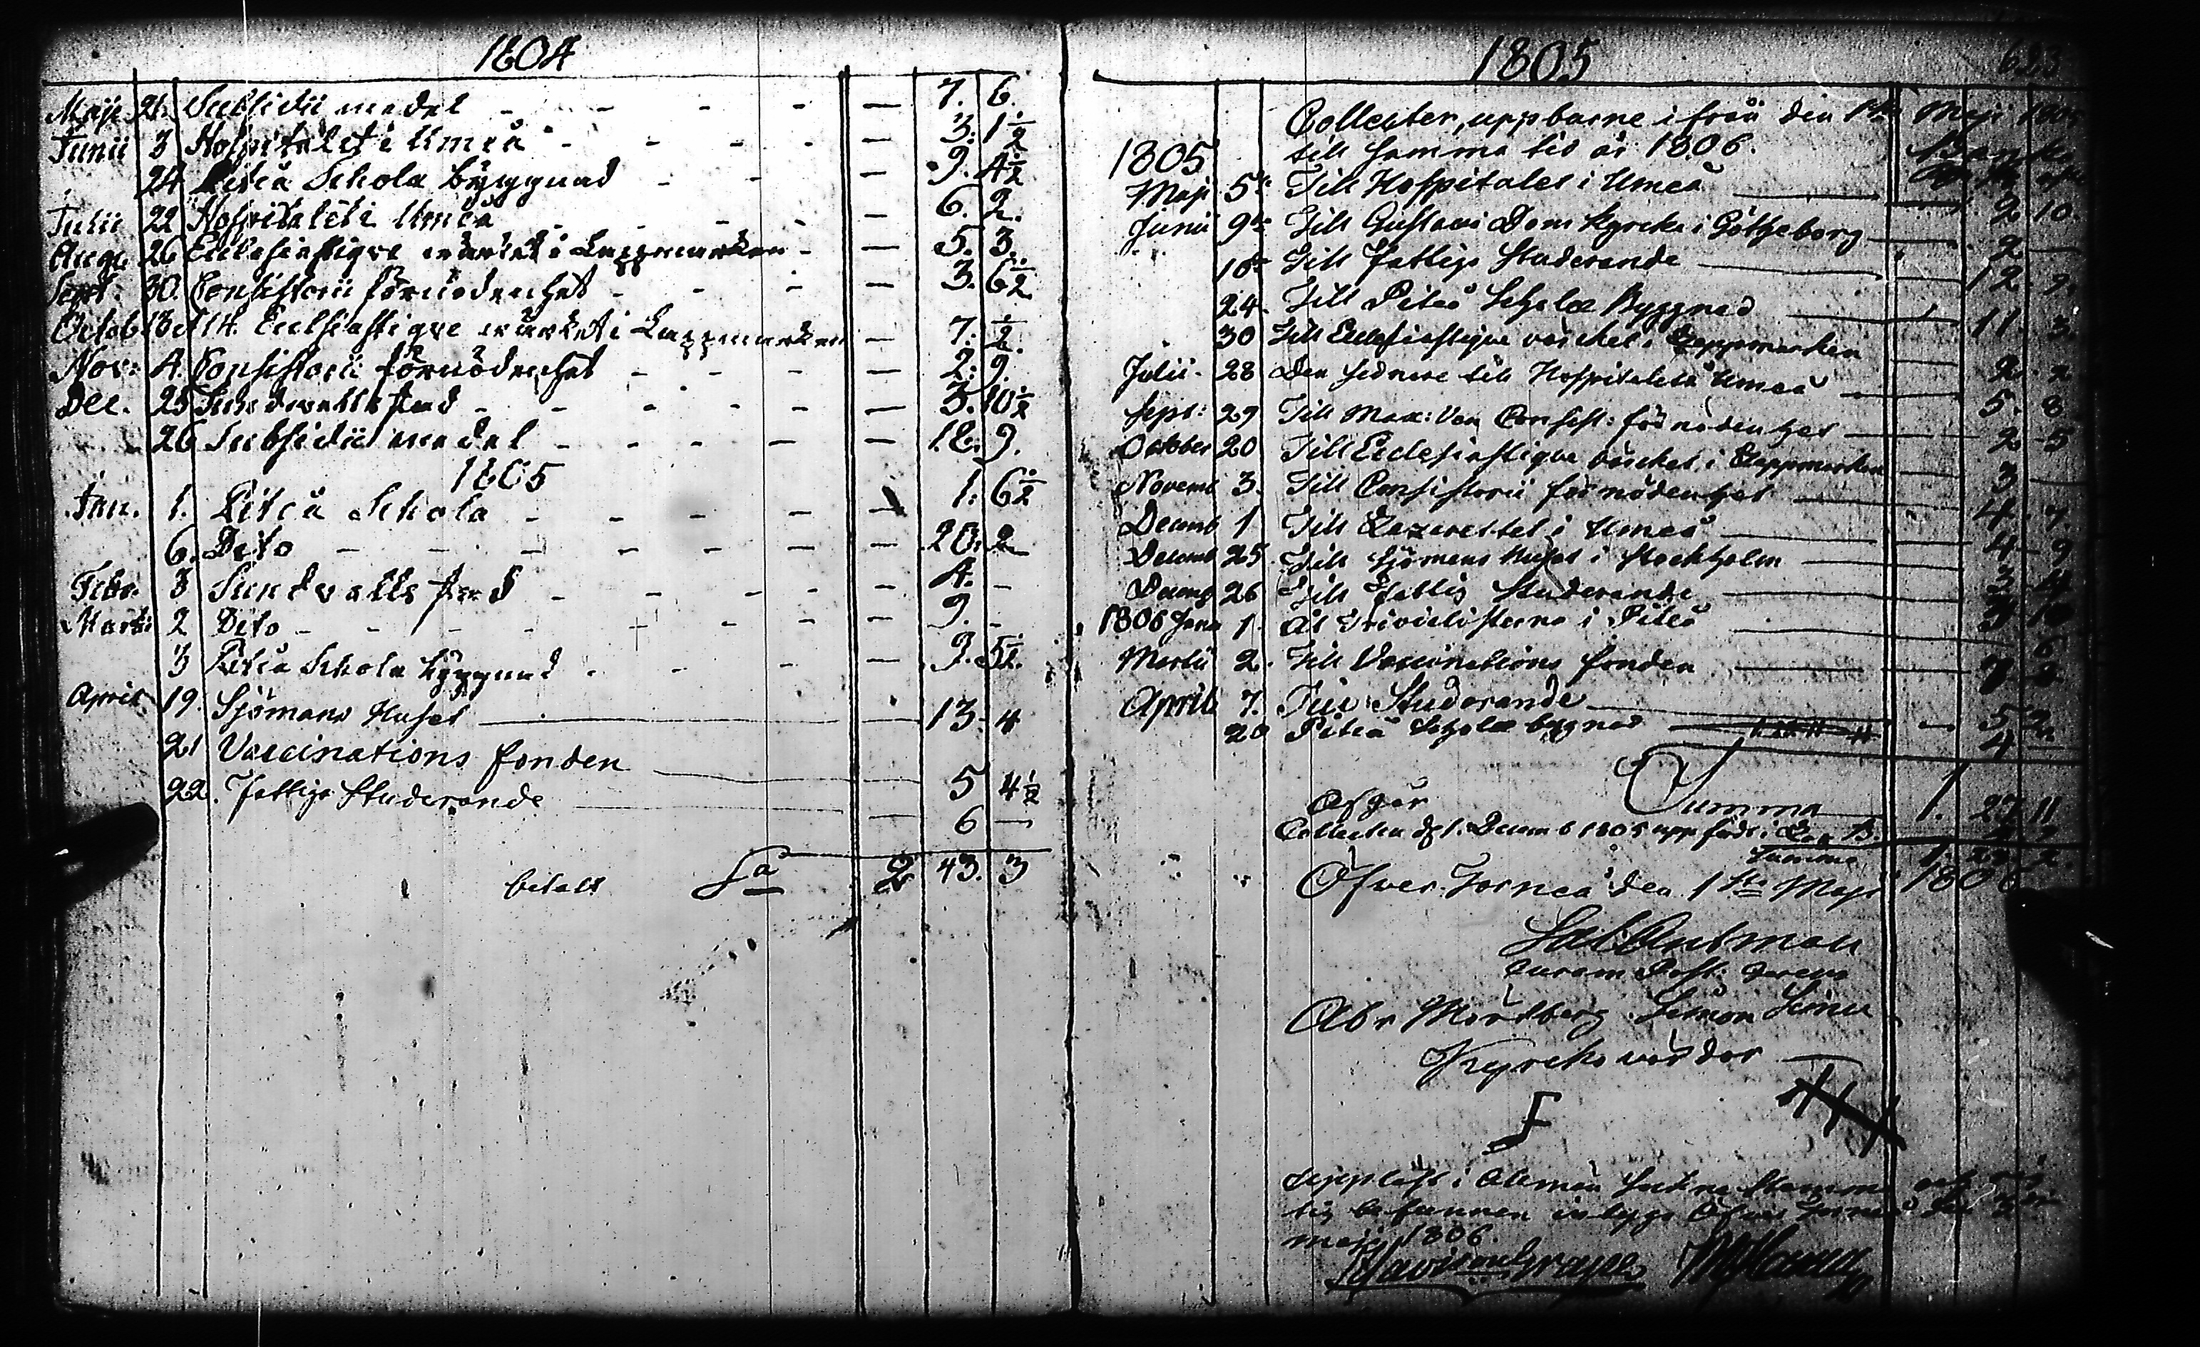 1804
Maji 21. Subsidii medel - - - - - 7. 6.
Junii 3 Hospitalet i Umeå - - - - 3. 1½
24 Piteå Schola byggnad - - - 9. 4½
Julii 22 Hospitalet i Umeå - - - 6. 2.
Aug. 26 Ecclesiastique wärket i Lappmarken - 5. 3.
Sept. 30. Consistorii förnödenhet - - - 3. 6½
Octob. 13 Ecclesiastique wärket i Lappmarken - 7. ½.
Nov: 4. Consistorii förnödenhet - - - 2. 9.
Dec. 25 Sundsvalls stad - - - - 3. 10½
26 Subsidii medel - - - - 18. 9.
1805
Jan. 1. Piteå Schola - - - - 1. 6½
6. Dito - - - - - 20. 2
Febr. 3 Sundvalls stad - - - - 4. -
Martii 2 Dito - - - - - 9. -
3 Piteå Schola byggnad - - - 9. 5½.
April 19. Sjömans Huset 13. 4
21 Vaccinations fonden 5 4½
22. Fattiga Studerande 6 —
betalt Sa 2 43. 3
1805
Collecter, uppburne ifrån den 1sta Maji 1805
1805 till samma tid år 1806. Banko
Maji 5te Till Hospitalet i Umeå 2 10.
Junii 9de Till Gustavi Dom kyrcka i Götheborg 2 —
16de Till Fattige Studerande 12. 9.
24. Till Piteå Schole Byggnad 11. 3.
30 Till Ecclesiastique värcket i Lappmarken 2. 2
Julii. 28 Den sednare till Hospitalet i Umeå 5. 8.
Sept: 29 Till Consist: förnödenhet 2 5
October 20 Till Ecclesiastique värcket i Lappmarken 3 —
Novemb 3. Till Consistorii förnödenhet 4. 7
Decemb 1 Till Lazarettet i Umeå 4 9
Decemb 25 Till Sjömens Huset i Stockholm 3 4
Decemb 26 Till Fattig Studerande 3 10
1806 Janu 1. At Trivialisterna i Piteå 6
Martii 2. Till Vaccinations fonden
April 7. Till Studerande 5 2
20 Piteå Schole bygnad 4 —
Summa 1. 27 11
Afgår
Collecten d. 1. Decemb 1805 uppförd i
Summa 1. 2.
Öfver Torneå den 1sta Maji 1806
Kyrcko värdar
Uppläst i Allmän Sockne Stämma och
befunnen intyga Öfver Torneå den
maji 1806.